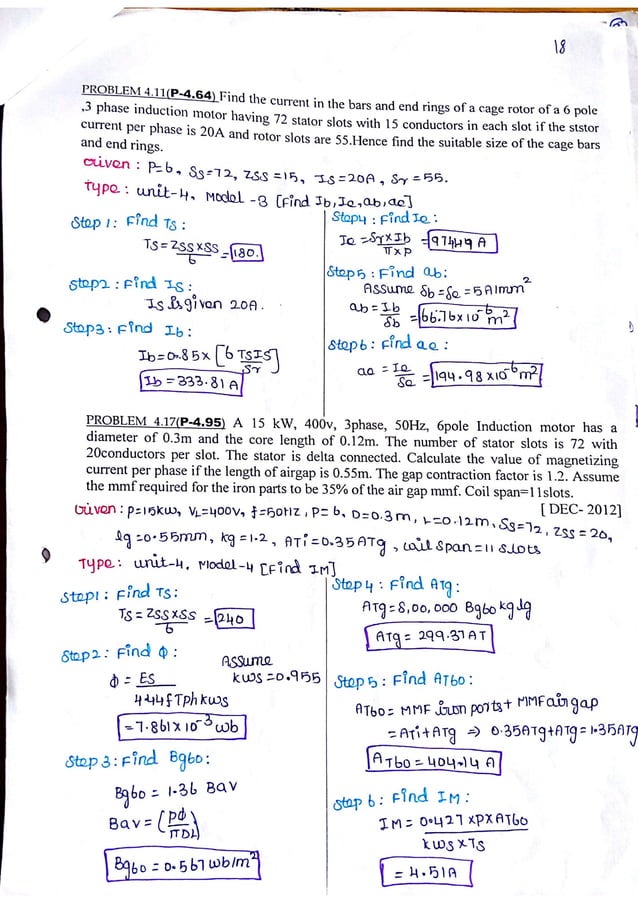 18
PROBLEM 4.11(P-4.64) Find the current in the bars and end rings of a cage rotor of a 6 pole
,3 phase induction motor having 72 stator slots with 15 conductors in each slot if the ststor
current per phase is 20A and rotor slots are 55.Hence find the suitable size of the cage bars
and end rings.
Given : P=6, Ss=72, Zss=15, Is=20A, Sr=55.
Type : unit-4, Model-3 [Find Ib, Ie, ab, ae]
Step 1: Find Ts:
Ts = Zss×Ss/6 = 180.
Step2 : Find Is:
Is is given 20A.
Step3 : Find Ib:
Ib=0.85× [6 Ts Is/Sr]
Ib = 333.81 A
Step4 : Find Ie:
Ie = Sr×Ib/π×P = 974.49 A
Step5 : Find ab:
Assume δb=δe = 5 A/mm²
ab = Ib/δb = 66.76×10⁻⁶ m²
Step6 : Find ae :
ae = Ie/δe = 194.98×10⁻⁶ m²
PROBLEM 4.17(P-4.95) A 15 kW, 400v, 3phase, 50Hz, 6pole Induction motor has a
diameter of 0.3m and the core length of 0.12m. The number of stator slots is 72 with
20conductors per slot. The stator is delta connected. Calculate the value of magnetizing
current per phase if the length of airgap is 0.55m. The gap contraction factor is 1.2. Assume
the mmf required for the iron parts to be 35% of the air gap mmf. Coil span=11slots.
[ DEC- 2012]
Given : P=15kw, VL=400V, f=50Hz, P=6, D=0.3m, L=0.12m, Ss=72, Zss=20,
lg=0.55mm, kg=1.2, ATi=0.35ATg, coil span=11 slots
Type: unit-4, Model-4 [Find IM]
Step1: Find Ts:
Ts = Zss×Ss/6 = 240
Step2: Find Φ:
Assume
kws=0.955
Φ = Es/4.44f Tph kws
=7.861×10⁻³ wb
Step 3: Find Bg60:
Bg60 = 1.36 Bav
Bav = (PΦ/πDL)
Bg60 = 0.567 wb/m²
Step 4 : Find ATg:
ATg = 8,00,000 Bg60 kg lg
ATg = 299.37 AT
Step 5: Find AT60:
AT60 = MMF iron ports + MMF air gap
= ATi + ATg ⇒ 0.35ATg+ATg = 1.35ATg
AT60 = 404.14 A
Step 6: Find IM:
IM = 0.427×P×AT60/kws×Ts
= 4.51A